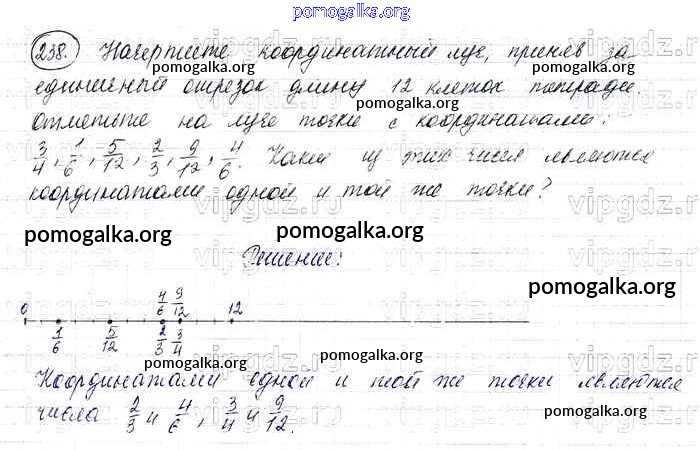 pomogalka.org
238. Начертите координатный луч, приняв за
единичный отрезок длину 12 клеток тетради.
Отметьте на луче точки с координатами:
3/4, 1/6, 5/12, 2/3, 9/12, 4/6. Какие из этих чисел являются
координатами одной и той же точки?
Решение:
0 4/6 9/12 12
1/6 5/12 2/3 3/4
Координатами одной и той же точки являются
числа 2/3 и 4/6, 3/4 и 9/12.
pomogalka.org
pomogalka.org
pomogalka.org
pomogalka.org
pomogalka.org
pomogalka.org
pomogalka.org
pomogalka.org
pomogalka.org
pomogalka.org
pomogalka.org
vipgdz.ru